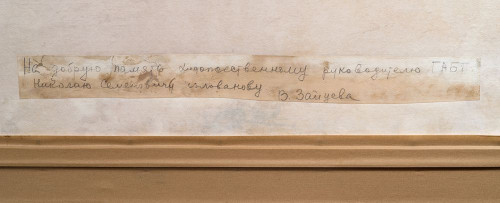 На добрую память художественному руководителю ГАБТ
Николаю Семёновичу Голованову
В Зайцева